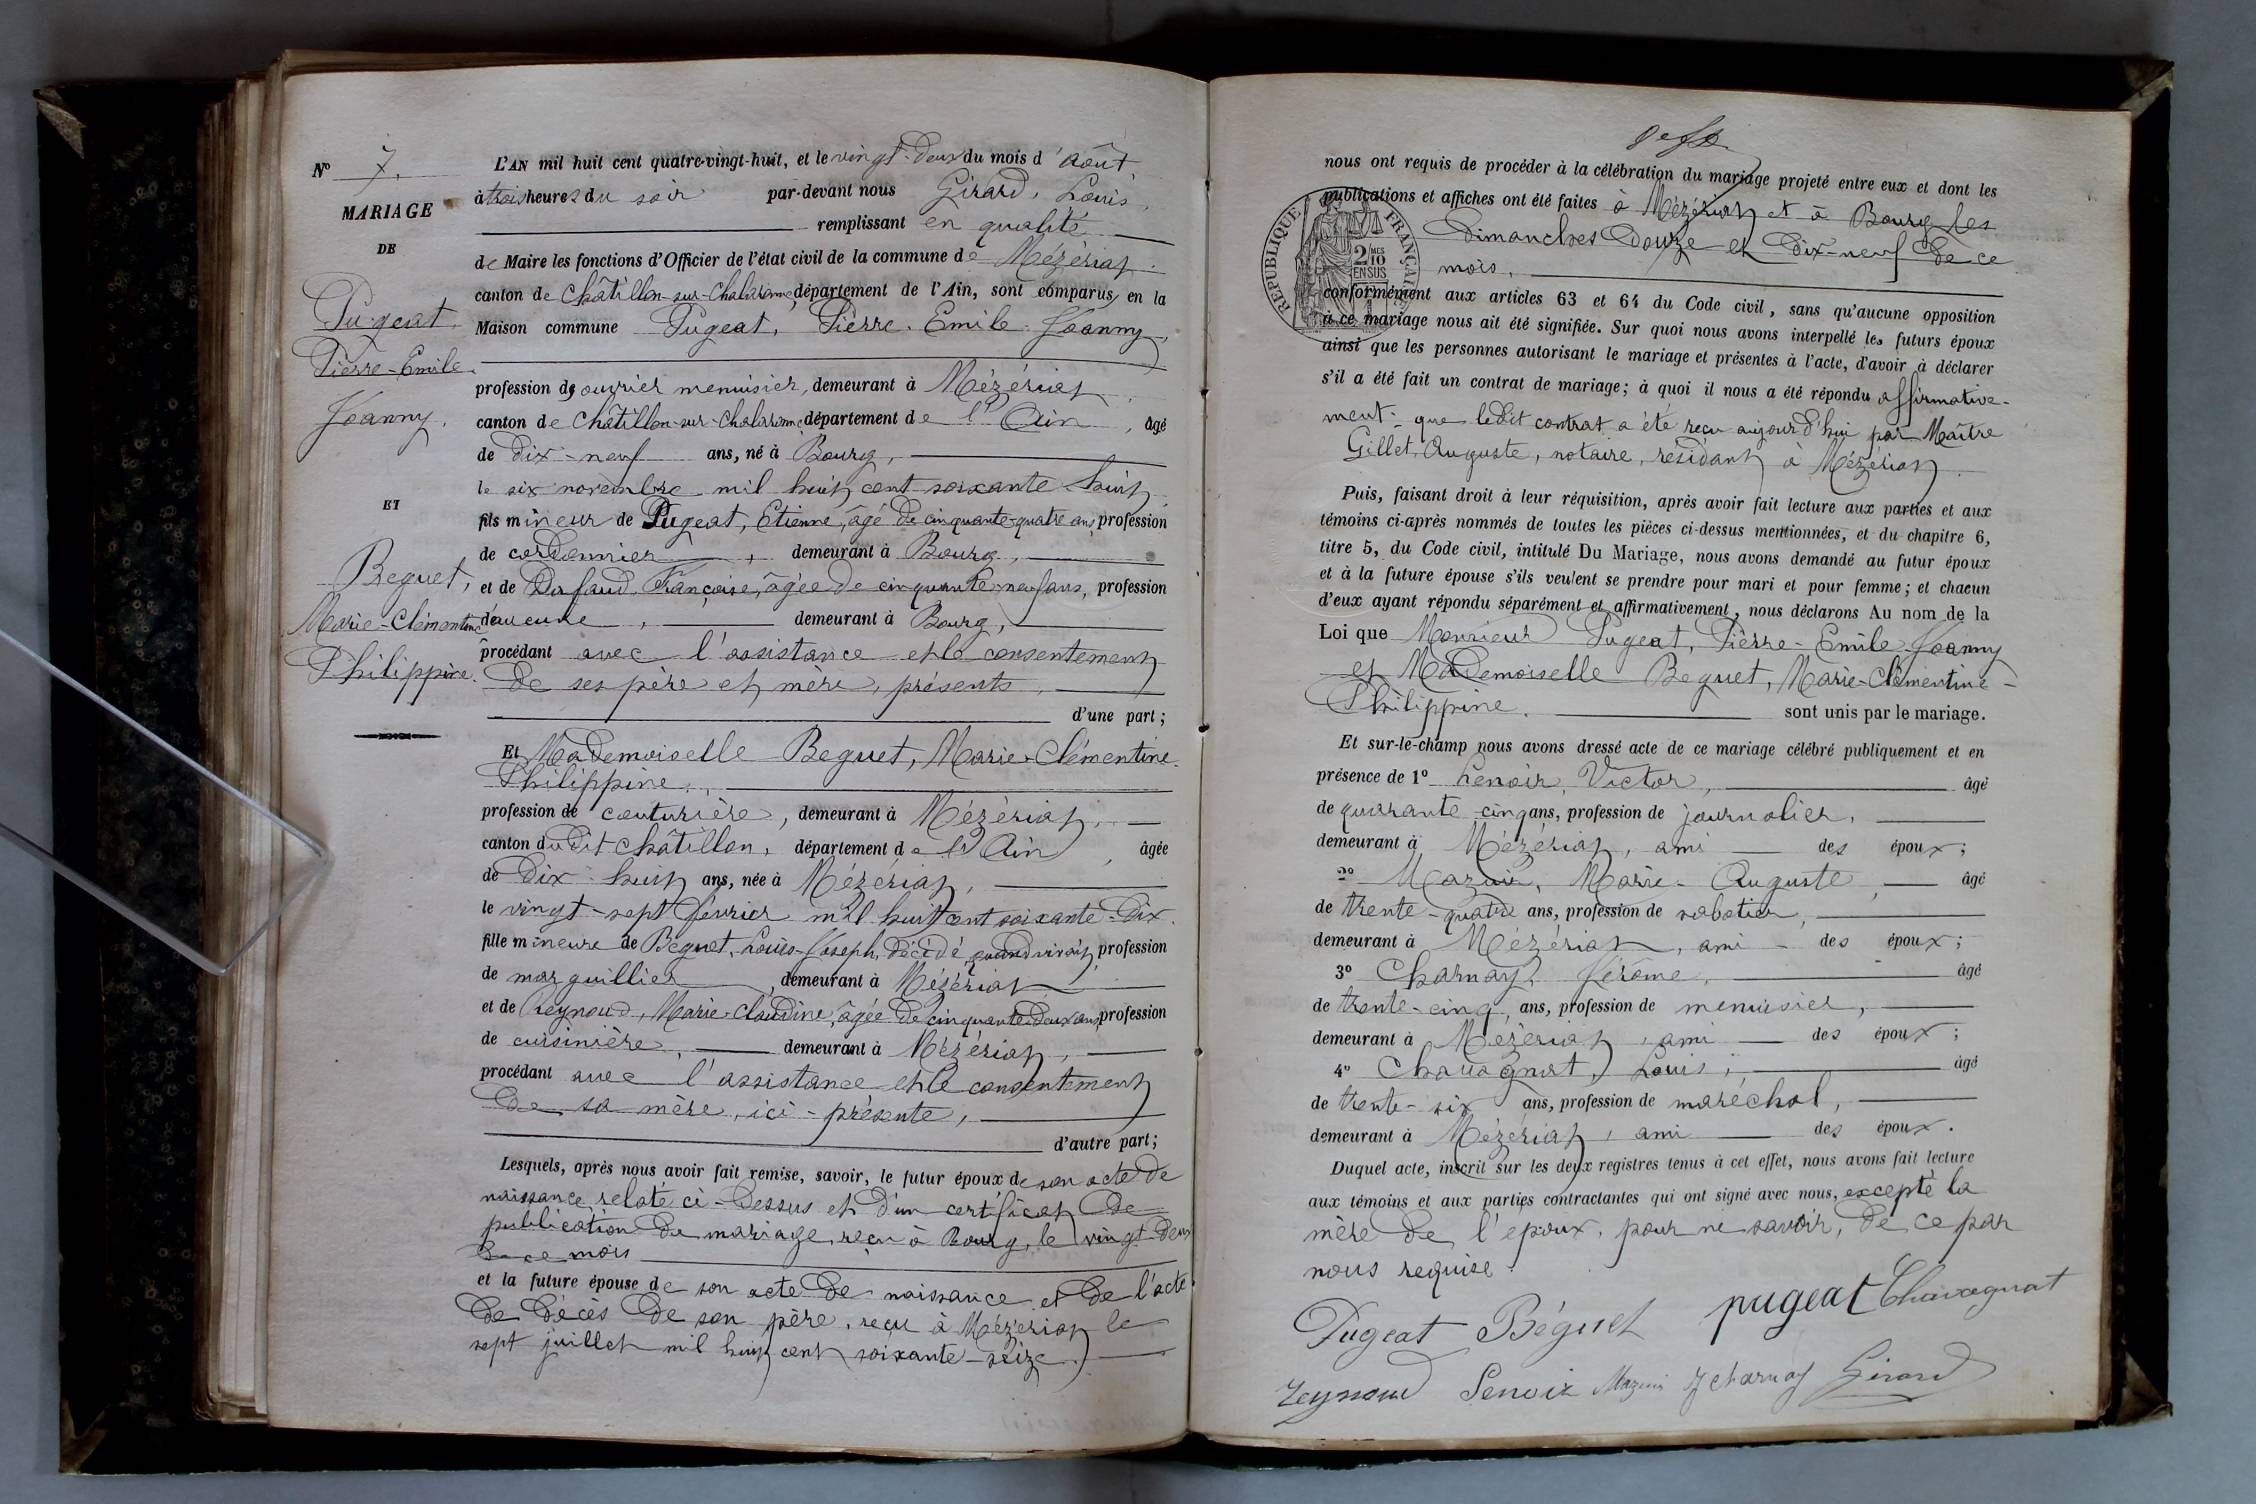 N° 7.
MARIAGE
DE
Pugeat
Pierre-Emile
Joanny.
ET
Beguet,
Marie-Clémentine
Philippine.
L'AN mil huit cent quatre-vingt-huit, et le vingt-deux du mois d'août,
à trois heures du soir par-devant nous Girard, Louis,
remplissant en qualité
de Maire les fonctions d'Officier de l'état civil de la commune de Mézériat
canton de Châtillon-sur-Chalaronne, département de l'Ain, sont comparus, en la
Maison commune Pugeat, Pierre-Emile-Joanny,
profession de ouvrier menuisier, demeurant à Mézériat,
canton de Châtillon-sur-Chalaronne, département de l'Ain, âgé
de dix-neuf ans, né à Bourg,
le six novembre mil huit cent soixante-huit,
fils mineur de Pugeat, Etienne, âgé de cinquante-quatre ans, profession
de cordonnier, demeurant à Bourg,
et de Françoise, âgée de cinquante-neuf ans, profession
d'aucune, demeurant à Bourg,
procédant avec l'assistance et le consentement
de ses père et mère, présents,
d'une part;
Et Mademoiselle Beguet, Marie-Clémentine-
Philippine,
profession de couturière, demeurant à Mézériat,
canton dudit Châtillon, département de l'Ain, âgée
de dix-huit ans, née à Mézériat,
le vingt-sept février mil huit cent soixante-dix.
fille mineure de Béguet, Louis-Joseph, décédé, quand vivait, profession
de marguillier, demeurant à Mézériat
et de Reynoud, Marie-Claudine, âgée de cinquante-deux ans, profession
de cuisinière, demeurant à Mézériat,
procédant avec l'assistance et le consentement
de sa mère, ici-présente,
d'autre part;
Lesquels, après nous avoir fait remise, savoir, le futur époux de son acte de
naissance relaté ci-dessus et d'un certificat de
publication de mariage, reçu à Bourg, le vingt-deux
de ce mois
et la future épouse de son acte de naissance et de l'acte
de décès de son père, reçu à Mézériat le
sept juillet mil huit cent soixante-seize.
nous ont requis de procéder à la célébration du mariage projeté entre eux et dont les
publications et affiches ont été faites à Mézériat et à Bourg les
dimanches douze et dix-neuf de ce
mois,
REPUBLIQUE FRANÇAISE
2 MES
10
EN SUS
conformément aux articles 63 et 64 du Code civil, sans qu'aucune opposition
à ce mariage nous ait été signifiée. Sur quoi nous avons interpellé les futurs époux
ainsi que les personnes autorisant le mariage et présentes à l'acte, d'avoir à déclarer
s'il a été fait un contrat de mariage; à quoi il nous a été répondu affirmative-
ment: que ledit contrat a été reçu aujourd'hui par Maître
Gillet, Auguste, notaire, résidant à Mézériat.
Puis, faisant droit à leur réquisition, après avoir fait lecture aux parties et aux
témoins ci-après nommés de toutes les pièces ci-dessus mentionnées, et du chapitre 6,
titre 5, du Code civil, intitulé Du Mariage, nous avons demandé au futur époux
et à la future épouse s'ils veulent se prendre pour mari et pour femme; et chacun
d'eux ayant répondu séparément et affirmativement, nous déclarons Au nom de la
Loi que Monsieur Pugeat, Pierre-Emile-Joanny
et Mademoiselle Beguet, Marie-Clémentine-
Philippine. sont unis par le mariage.
Et sur-le-champ nous avons dressé acte de ce mariage célébré publiquement et en
présence de 1° Lenoir, Victor, âgé
de quarante-cinq ans, profession de journalier,
demeurant à Mézériat, ami des époux;
2° Mazuir, Marie-Auguste, âgé
de trente-quatre ans, profession de sabotier,
demeurant à Mézériat, ami des époux;
3° Charnay, Jérôme, âgé
de trente-cinq ans, profession de menuisier,
demeurant à Mézériat, ami des époux;
4° Chavagnat, Louis, âgé
de trente-six ans, profession de maréchal,
demeurant à Mézériat, ami des époux.
Duquel acte, inscrit sur les deux registres tenus à cet effet, nous avons fait lecture
aux témoins et aux parties contractantes qui ont signé avec nous, excepté la
mère de l'époux, pour ne savoir, de ce par
nous requise.
Pugeat Béguet pugeat Chavagnat
Reynoud Lenoir Mazuir J Charnay Girard